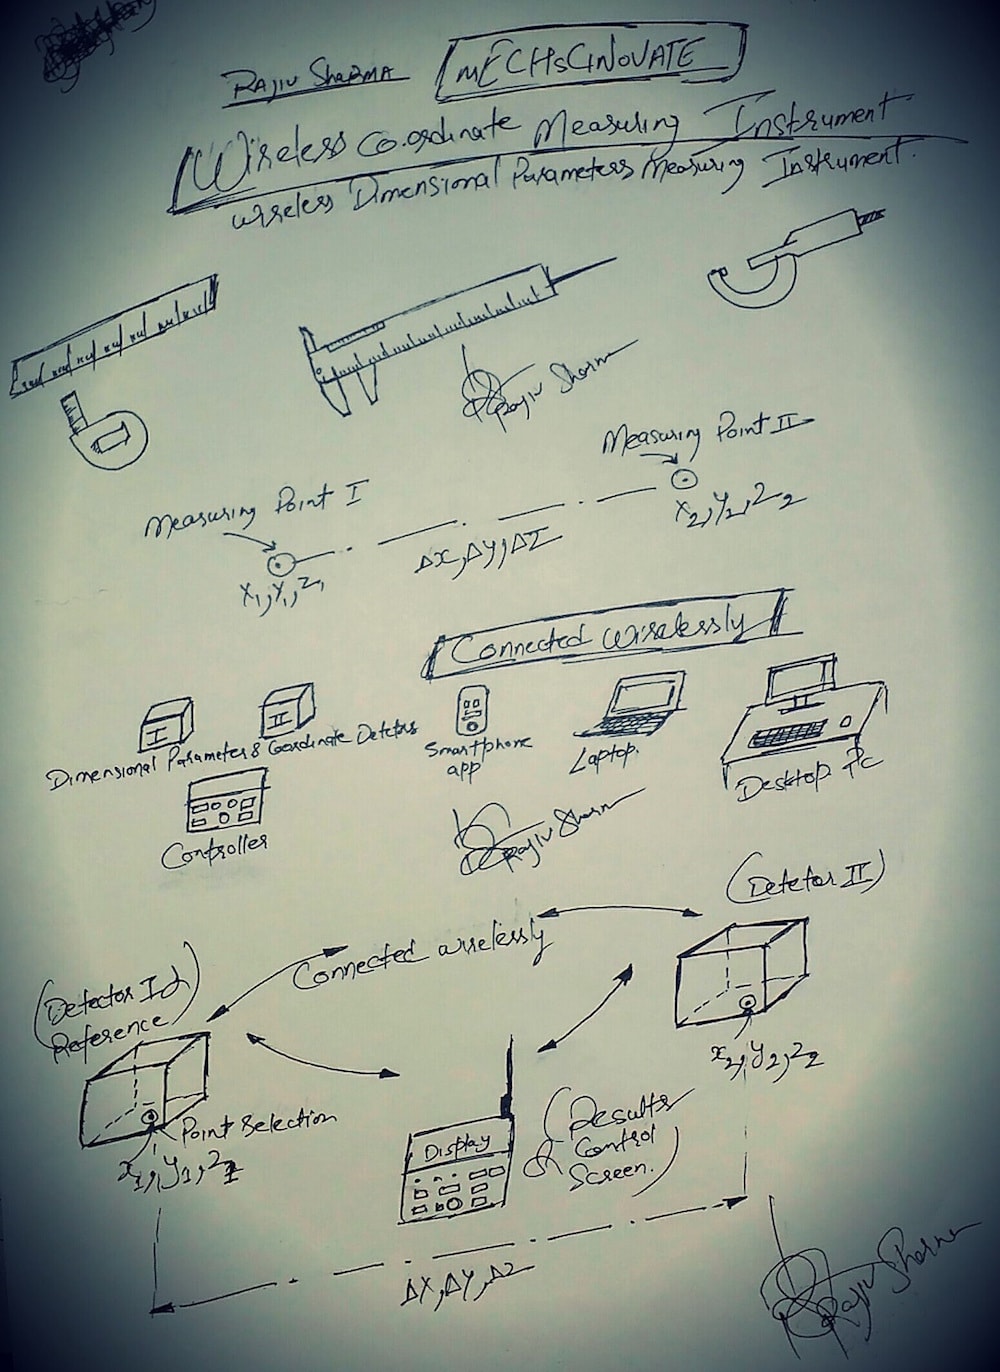 RAJIV SHARMA
MECHsCINOVATE
Wireless Co.ordinate Measuring Instrument
Wireless Dimensional Parameters Measuring Instrument.
Rajiv Sharma
Measuring Point II
Measuring Point I
X2, Y2, Z2
ΔX, ΔY, ΔZ
X1, Y1, Z1
Connected Wirelessly
I
II
Dimensional Parameter & Coordinate Detetors
Smartphone
app
Laptop.
Desktop PC
Controller
Rajiv Sharma
(Detetor II)
Connected wirelessly
(Detector I &
Reference)
x2, y2, z2
Point Selection
x1, y1, z1
Display
(Results
& Control
Screen.)
ΔX, ΔY, ΔZ
Rajiv Sharma